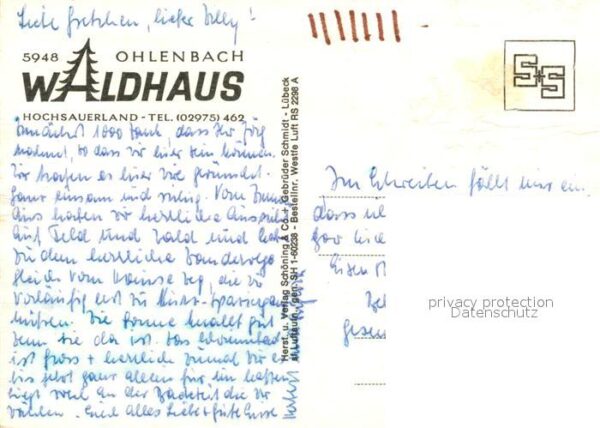 Liebe Gretchen, lieber Willy!
5948 OHLENBACH
WALDHAUS
HOCHSAUERLAND - TEL. (02975) 462
zunächst 1000 Dank, dass Ihr Jörg
nahmt, so dass wir hier sein können.
Wir haben es hier gut
Ganz einsam und ruhig. Vom Zimmer
aus haben wir herrliche Aussicht
auf Feld und Wald und
zudem herrliche Wanderwege
gleich vom Hause weg, die wir
vorläufig erst zu
müssen. Die Sonne knallt gut
wenn sie da ist. Das Schwimmbad
ist gross + herrlich zumal wir es
bis jetzt ganz allein für uns hatten
liegt wohl an der Badezeit die wir
wählen. Euch Alles Liebe + gute Grüsse
Herst. u. Verlag Schöning & Co. + Gebrüder Schmidt - Lübeck
SH 1-60238 - Bestellnr. Westfe Luft RS 2298 A
S+S
Im Schreiben fällt mir ein,
dass
gar
privacy protection
Datenschutz